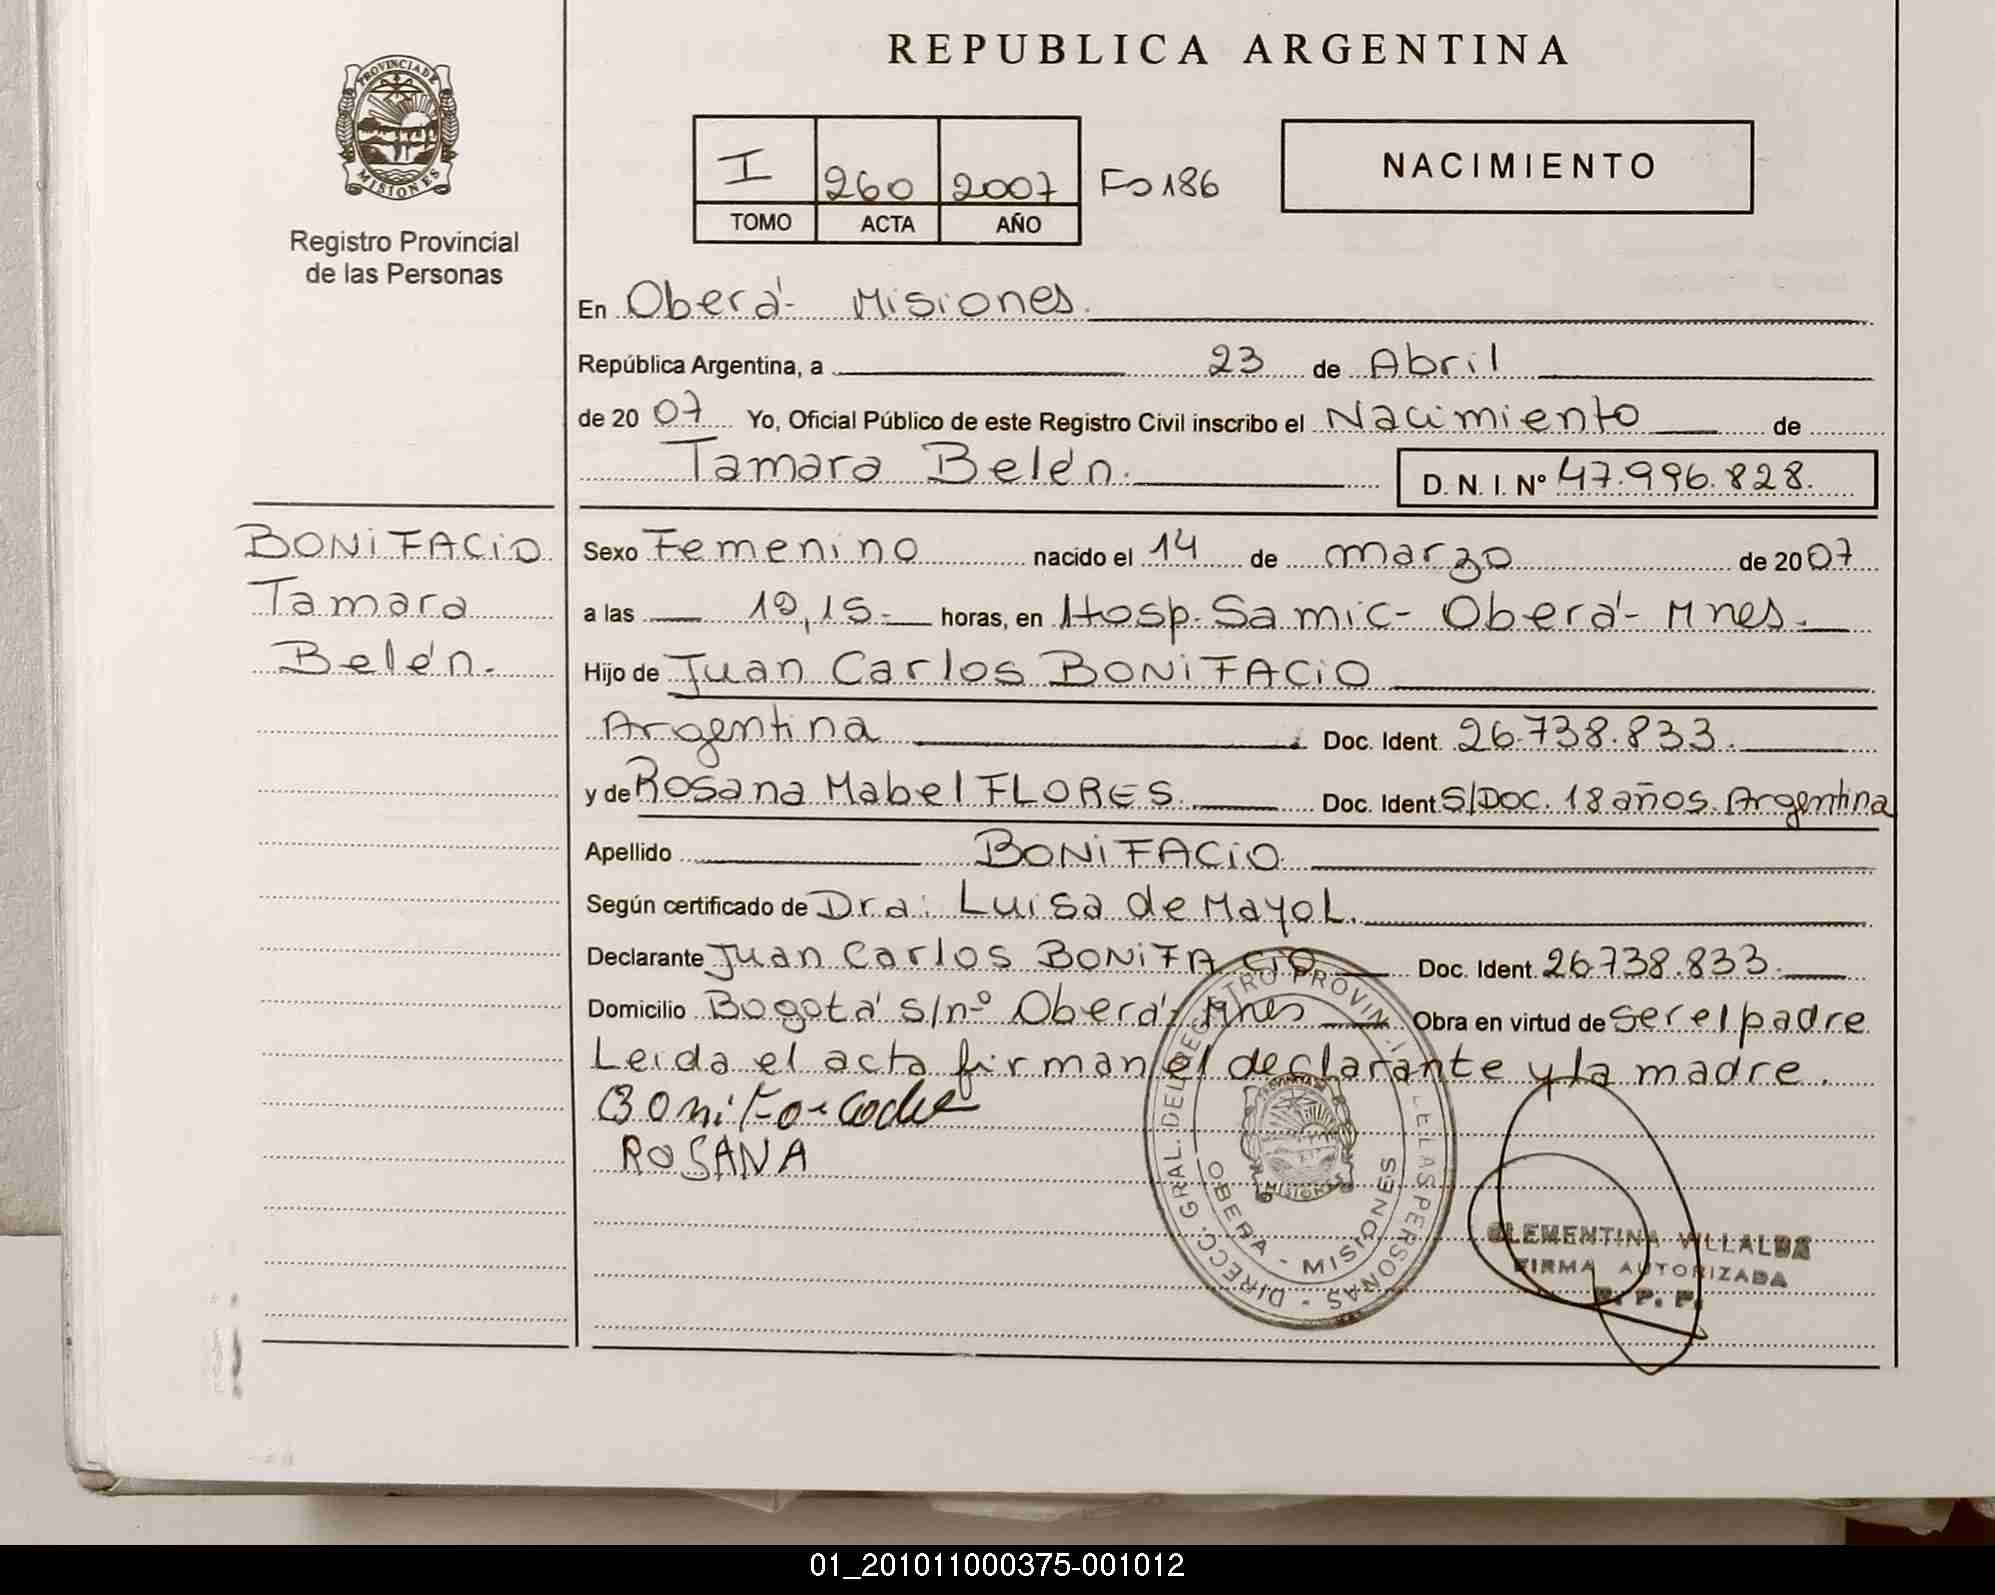 REPUBLICA ARGENTINA
PROVINCIA DE
MISIONES
Registro Provincial
de las Personas
I 260 2007 Fo 186
TOMO ACTA AÑO
NACIMIENTO
En Oberá - Misiones.
República Argentina, a 23 de Abril
de 2007 Yo, Oficial Público de este Registro Civil inscribo el Nacimiento de
Tamara Belén. D. N. I. Nº 47.996.828.
BONIFACIO
Tamara
Belén.
Sexo Femenino nacido el 14 de marzo de 2007
a las 19,15.- horas, en Hosp. Samic - Oberá - Mnes.
Hijo de Juan Carlos BONIFACIO
Argentina Doc. Ident. 26.738.833.
y de Rosana Mabel FLORES Doc. Ident. S/Doc. 18 años. Argentina
Apellido BONIFACIO
Según certificado de Dra: Luisa de Mayol.
Declarante Juan Carlos BONIFACIO Doc. Ident. 26.738.833.
Domicilio Bogotá s/nº Oberá - Mnes Obra en virtud de ser el padre
Leida el acta firman el declarante y la madre.
ROSANA
DIRECC. GRAL. DEL REGISTRO PROVIN. DE LAS PERSONAS
MISIONES
OBERA - MISIONES
CLEMENTINA VILLALBA
FIRMA AUTORIZADA
R. P. P.
01_201011000375-001012